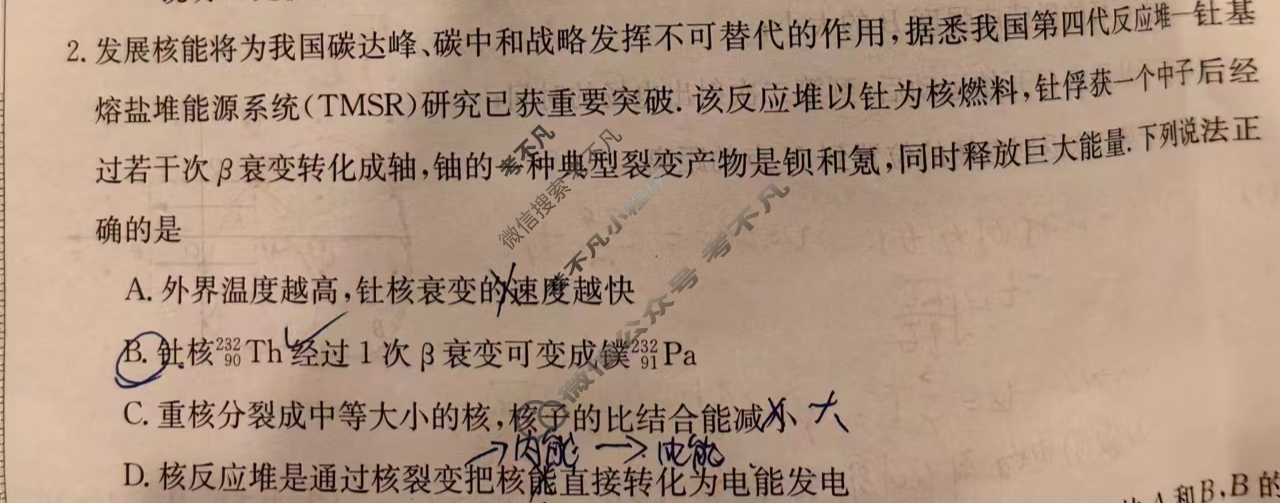 2. 发展核能将为我国碳达峰、碳中和战略发挥不可替代的作用,据悉我国第四代反应堆一钍基
熔盐堆能源系统(TMSR)研究已获重要突破. 该反应堆以钍为核燃料,钍俘获一个中子后经
过若干次β衰变转化成轴,铀的一种典型裂变产物是钡和氪,同时释放巨大能量.下列说法正
确的是
考不凡
微信搜索 考不凡小程序
微信公众号 考不凡
A. 外界温度越高,钍核衰变的速度越快
B. 钍核²³²₉₀Th经过1次β衰变可变成镤²³²₉₁Pa
C. 重核分裂成中等大小的核,核子的比结合能减小 大
→内能→电能
D. 核反应堆是通过核裂变把核能直接转化为电能发电
A和B,B的